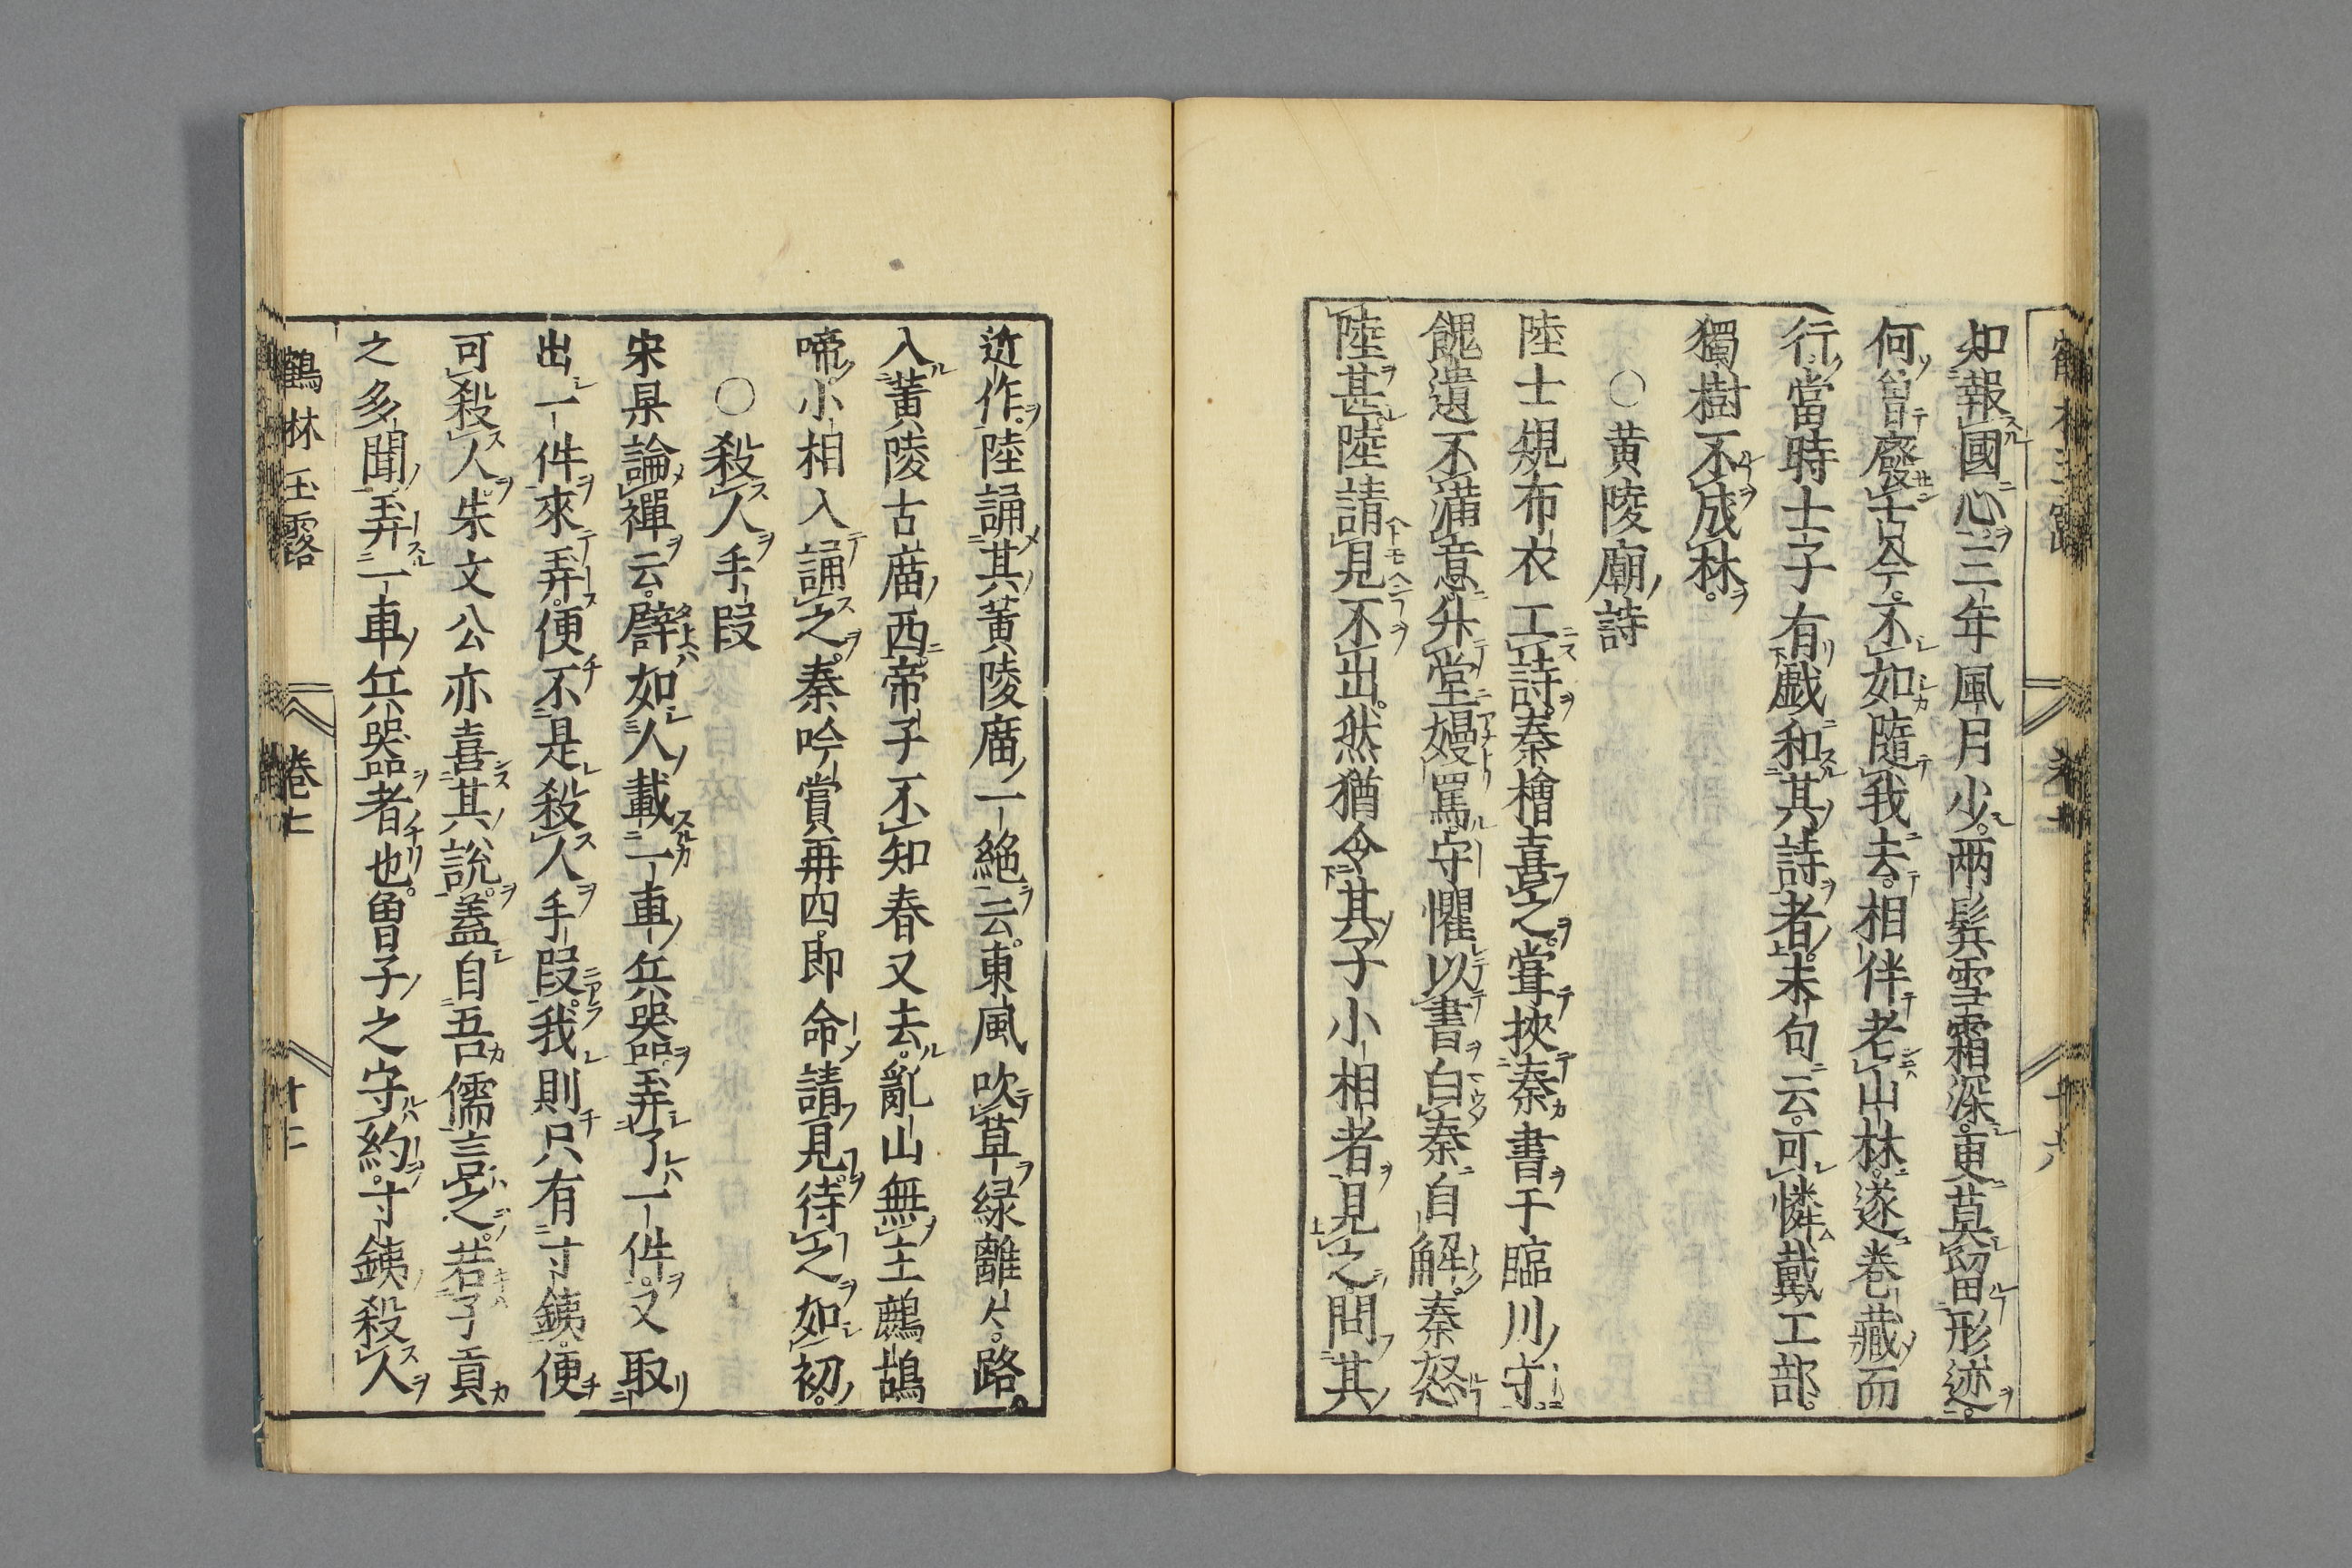 知報國心三年風月少兩鬂雪霜深更莫留形迹
何曾廢古今不如隨我去相伴老山林遂卷藏而
行當時士子有戯和其詩者末句云可憐戴工部
獨樹不成林
○黄陵廟詩
陸士規布衣工詩秦檜喜之甞挾秦書干臨川守
餽遺不滿意升堂嫚罵守懼以書白秦自解秦怒
陸甚陸請見不出然猶令其子小相者見之問其
近作陸誦其黄陵廟一絶云東風吹草緑離〻路
入黄陵古庿西帝子不知春又去亂山無主鷓鴣
啼小相入誦之秦吟賞再四即命請見待之如初
○殺人手段
宋杲論禪云譬如人載一車兵器弄了一件又取
出一件來弄便不是殺人手段我則只有寸鉄便
可殺人朱文公亦喜其説蓋自吾儒言之若子貢
之多聞弄一車兵器者也曽子之守約寸鉄殺人
鶴林玉露
卷七
十二